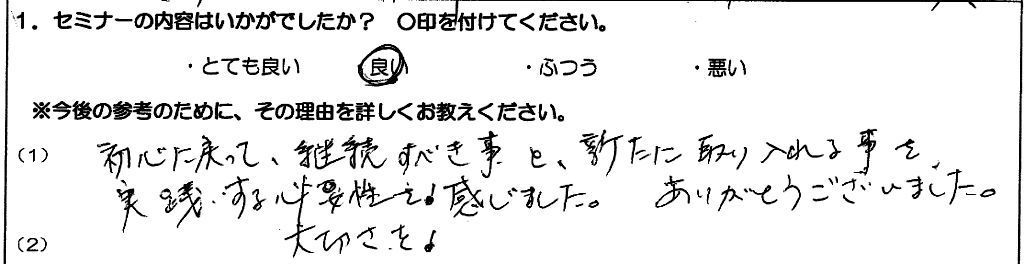 1. セミナーの内容はいかがでしたか? 〇印を付けてください。
・とても良い 良い ・ふつう ・悪い
※今後の参考のために、その理由を詳しくお教えください。
(1) 初心に戻って、継続すべき事と、新たに取り入れる事を、
実践する必要性を!感じました。 ありがとうございました。
(2) 大切さを!